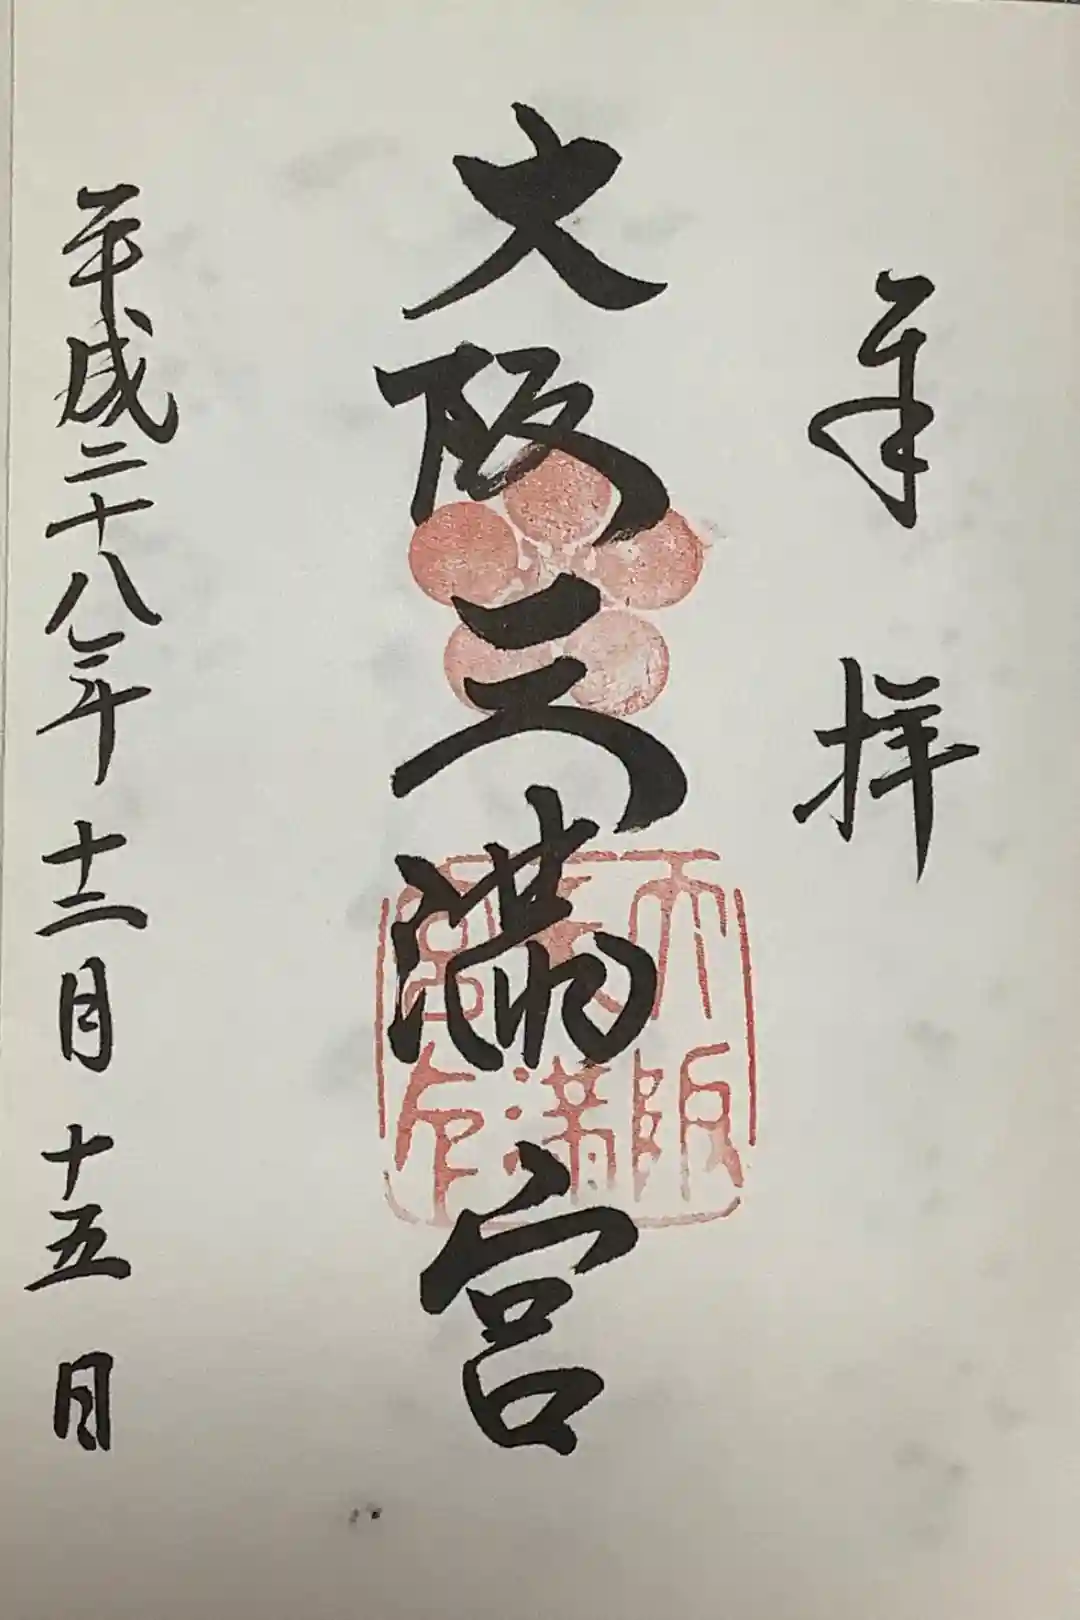 奉拝
大阪天満宮
大阪天満宮印
平成二十八年十二月十五日